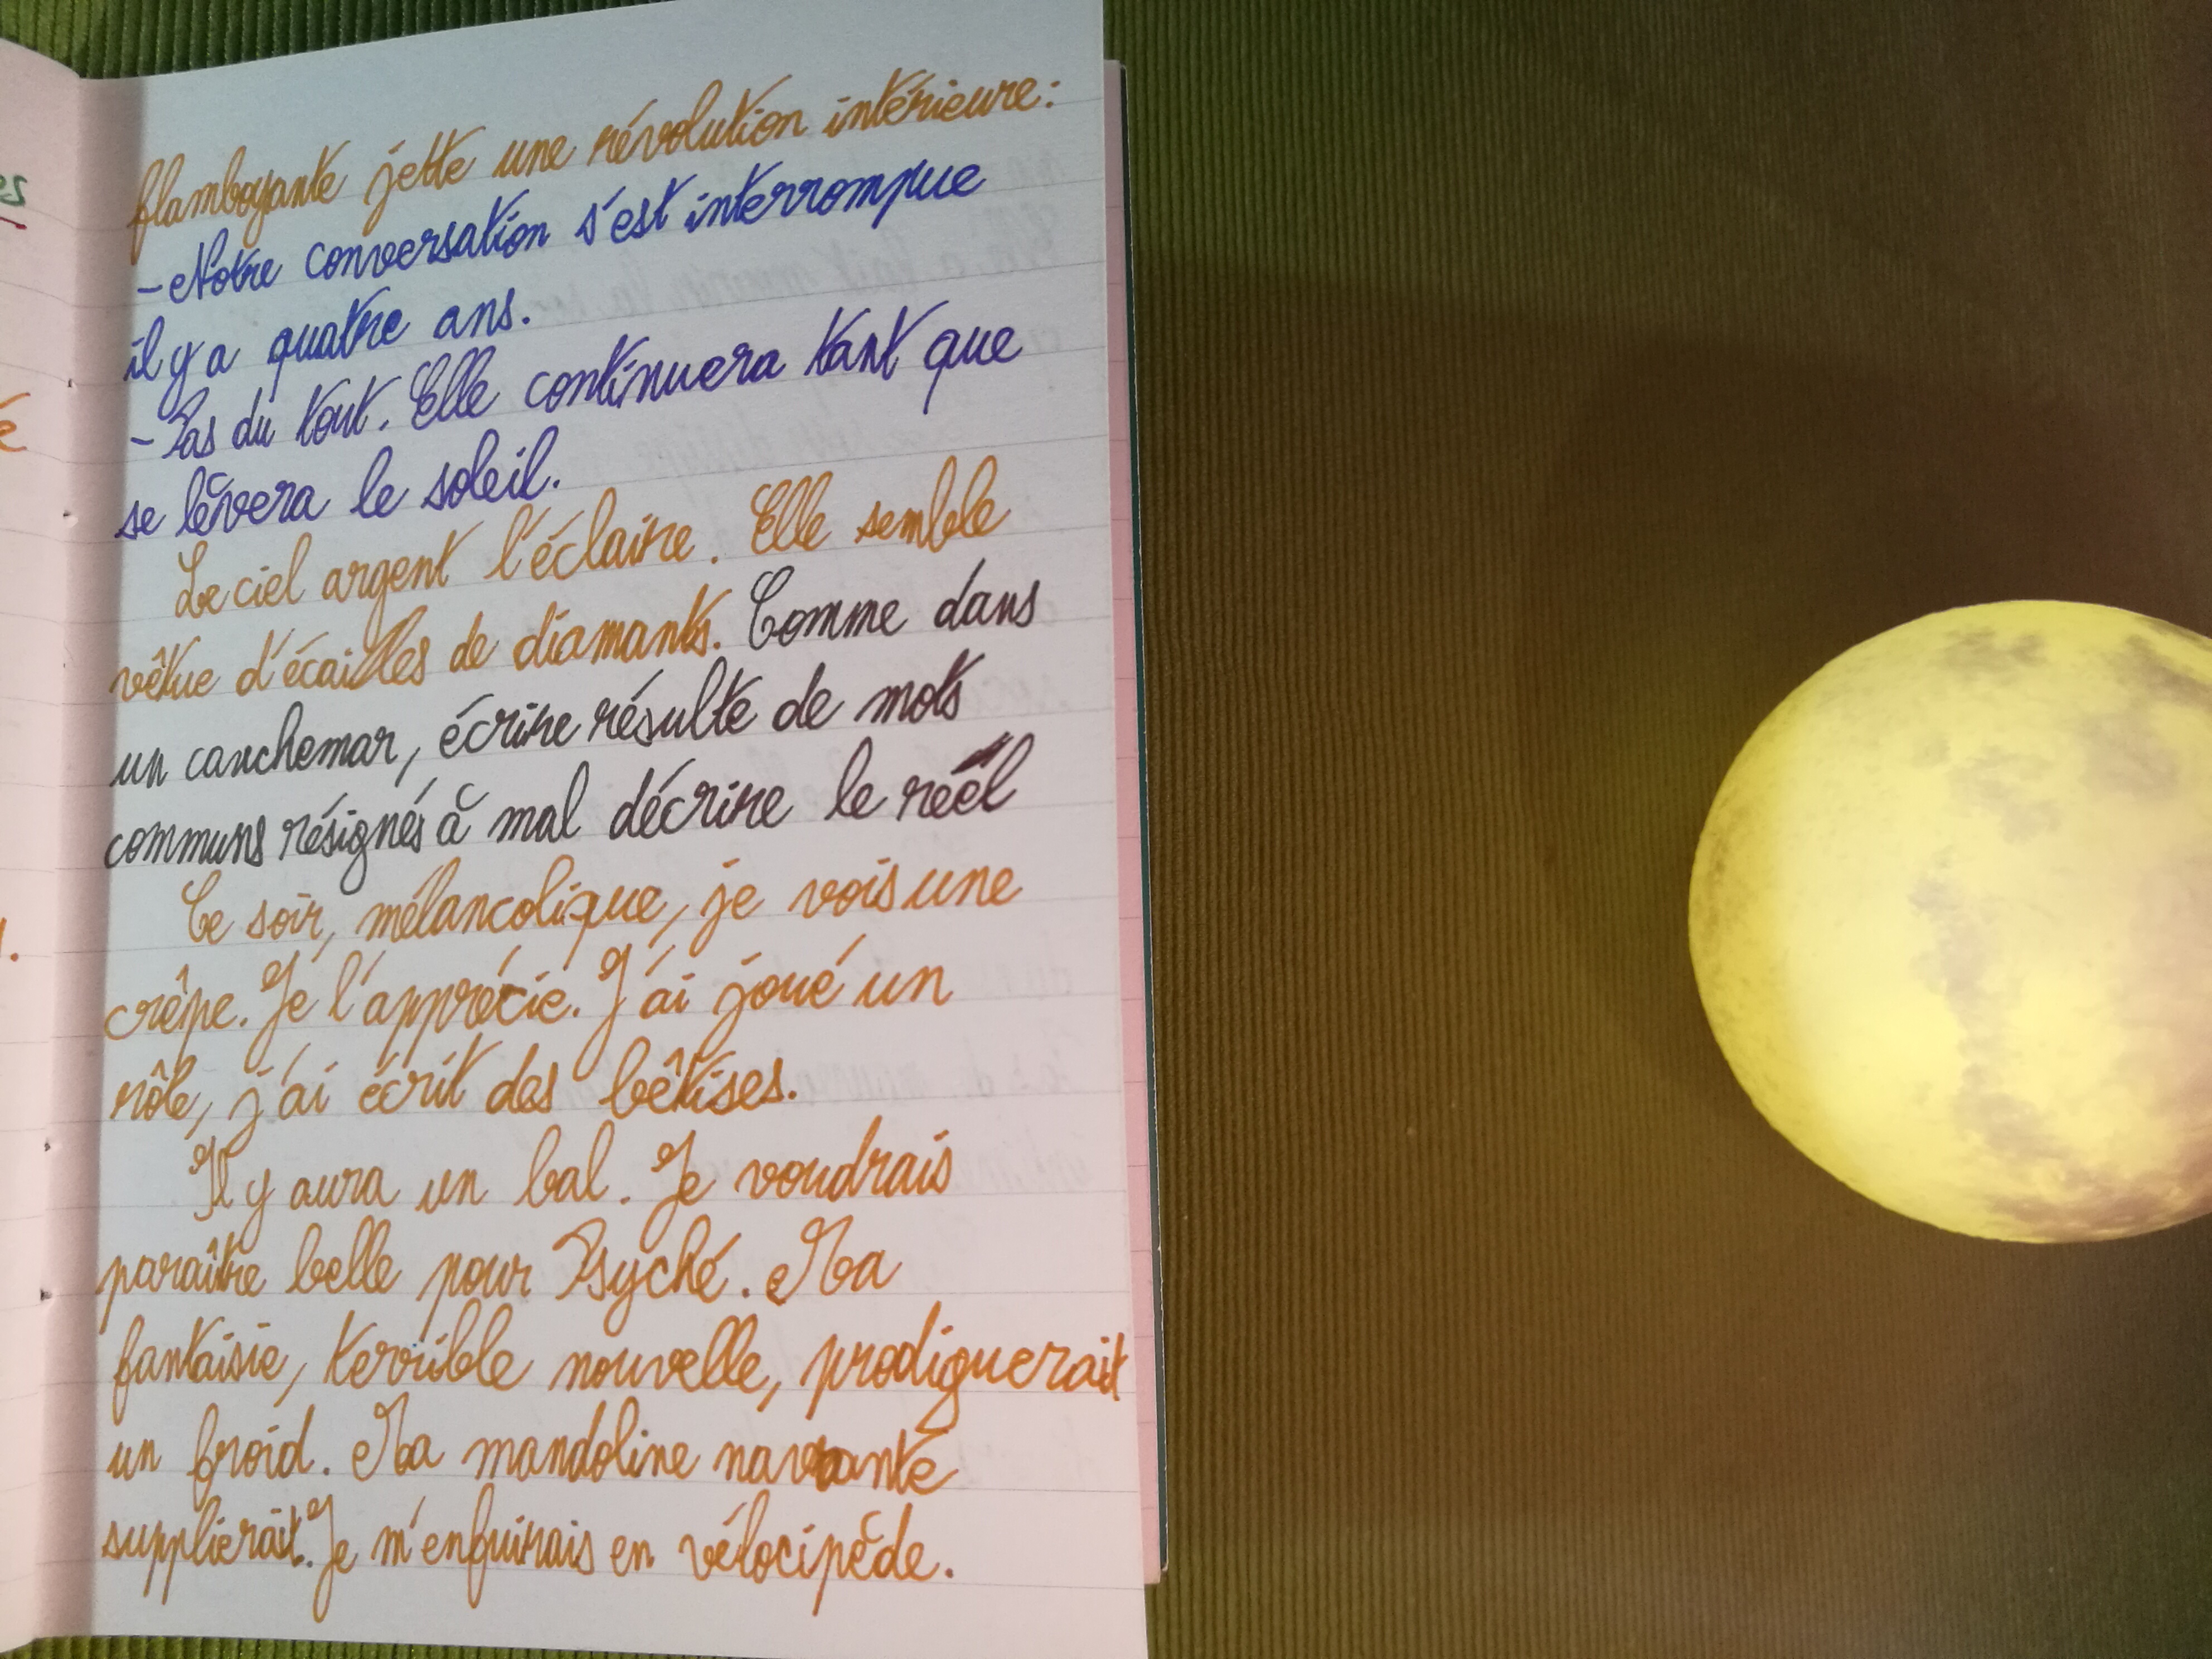 flamboyante jette une révolution intérieure:
- Notre conversation s'est interrompue
il y a quatre ans.
- Pas du tout. Elle continuera tant que
se lèvera le soleil.
Le ciel argent l'éclaire. Elle semble
vêtue d'écailles de diamants. Comme dans
un cauchemar, écrire résulte de mots
communs résignés à mal décrire le réel
Ce soir, mélancolique, je vois une
crêpe. Je l'apprécie. J'ai joué un
rôle, j'ai écrit des bêtises.
Il y aura un bal. Je voudrais
paraître belle pour Psyché. Ma
fantaisie, terrible nouvelle, prodiguerait
un froid. Ma mandoline navrante
supplierait. Je m'enfuirais en vélocipède.